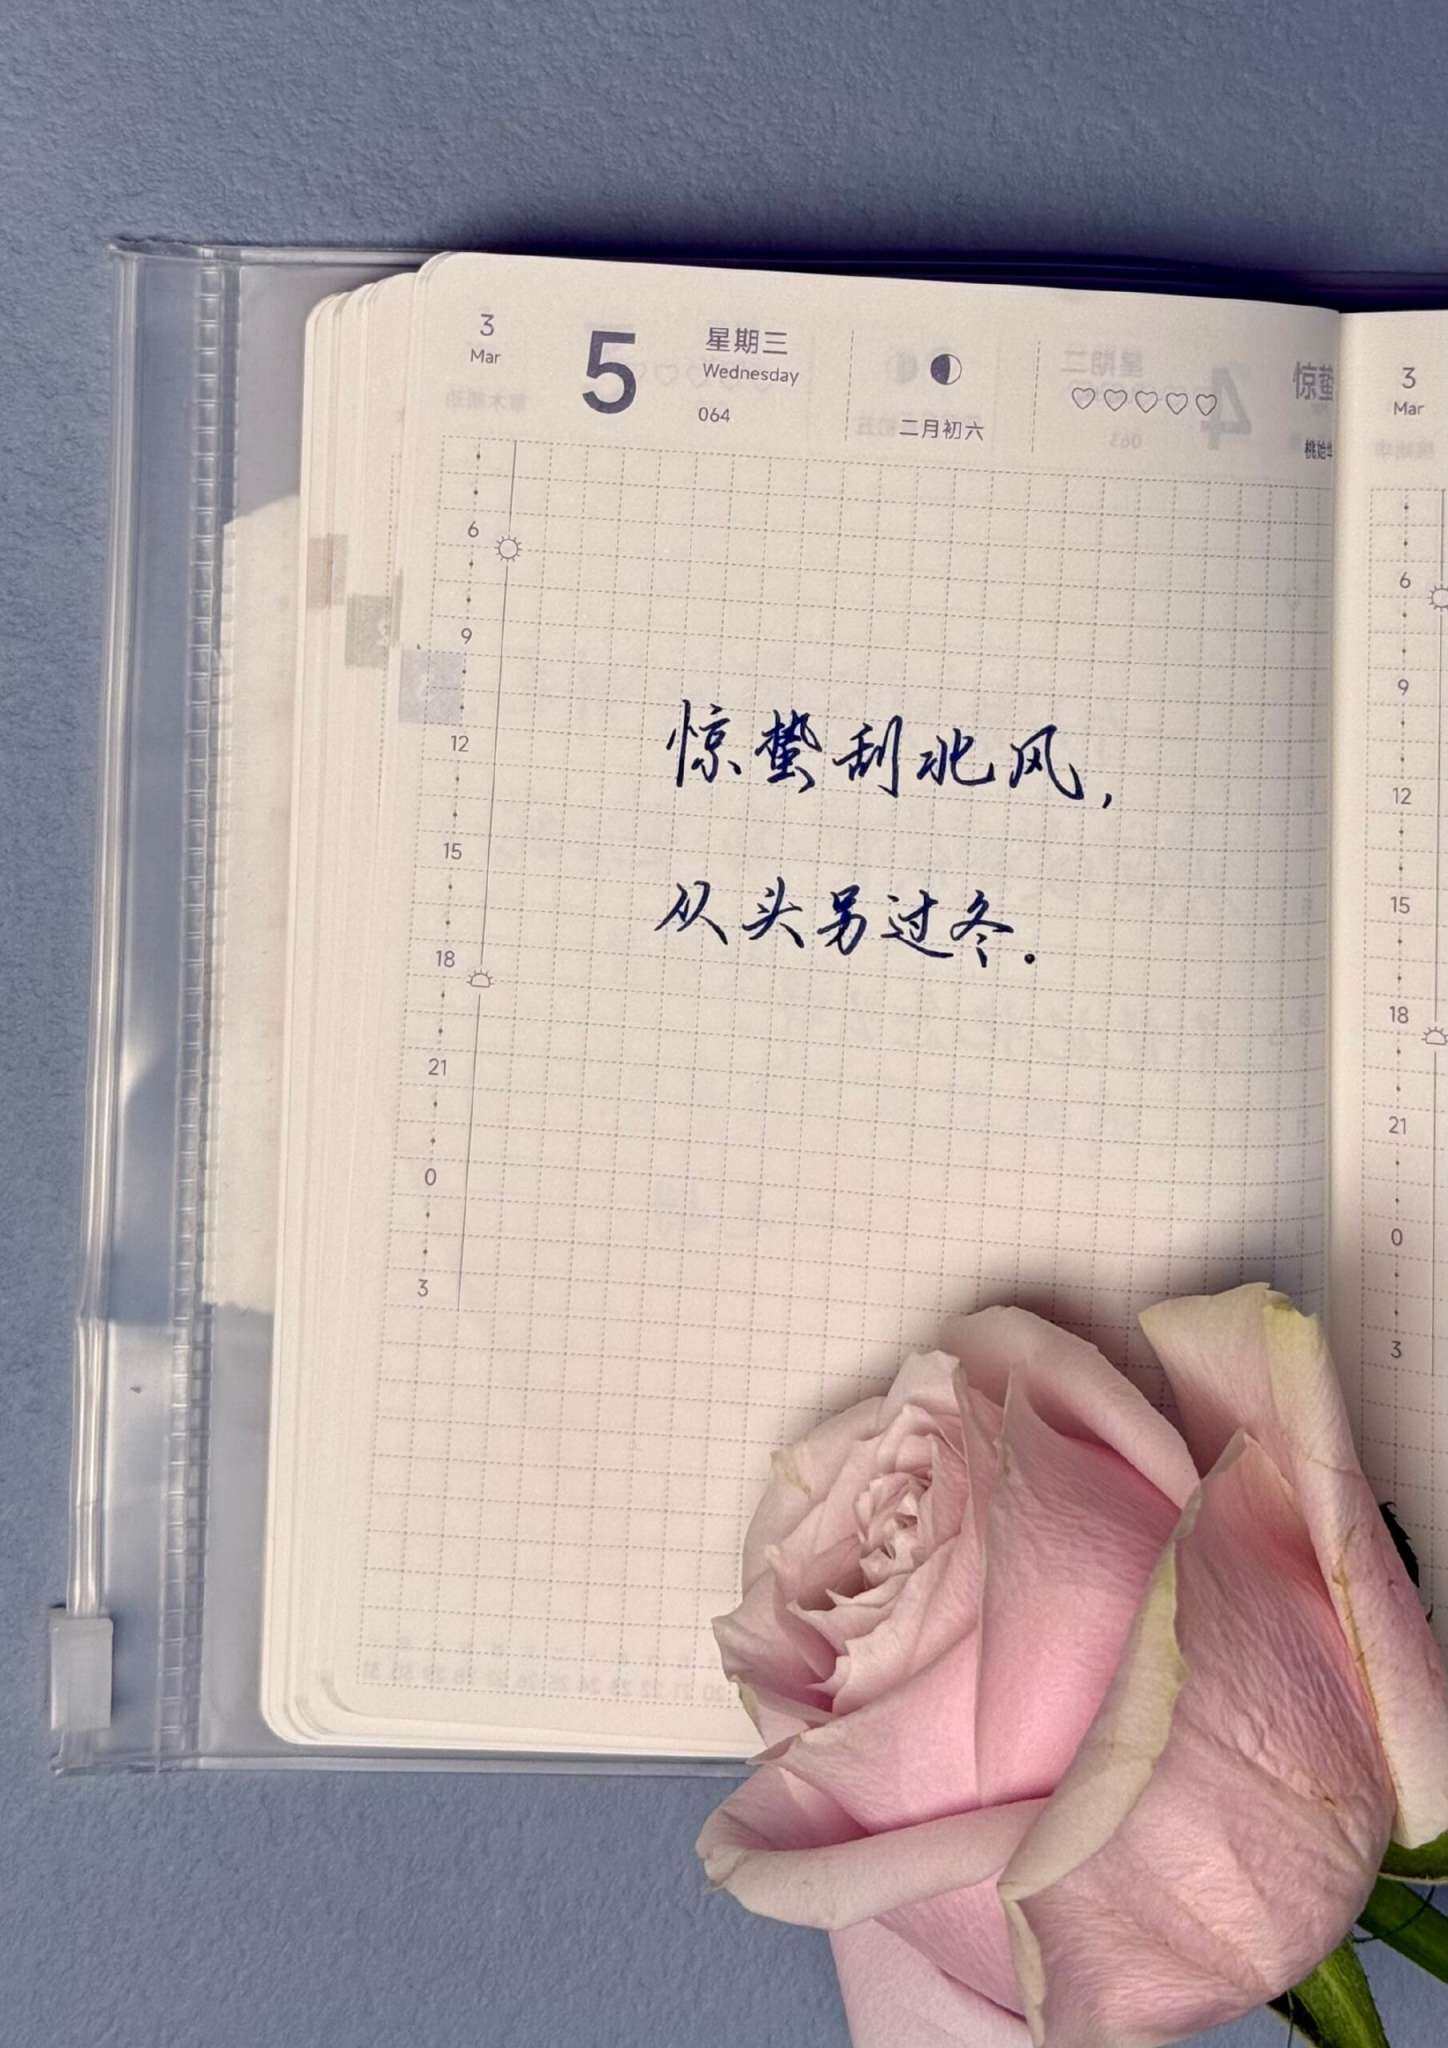 3
Mar
5
星期三
Wednesday
064
二月初六
惊蛰
桃始华
3
Mar
6
9
12
15
18
21
0
3
惊蛰刮北风,
从头另过冬.
6
9
12
15
18
21
0
3